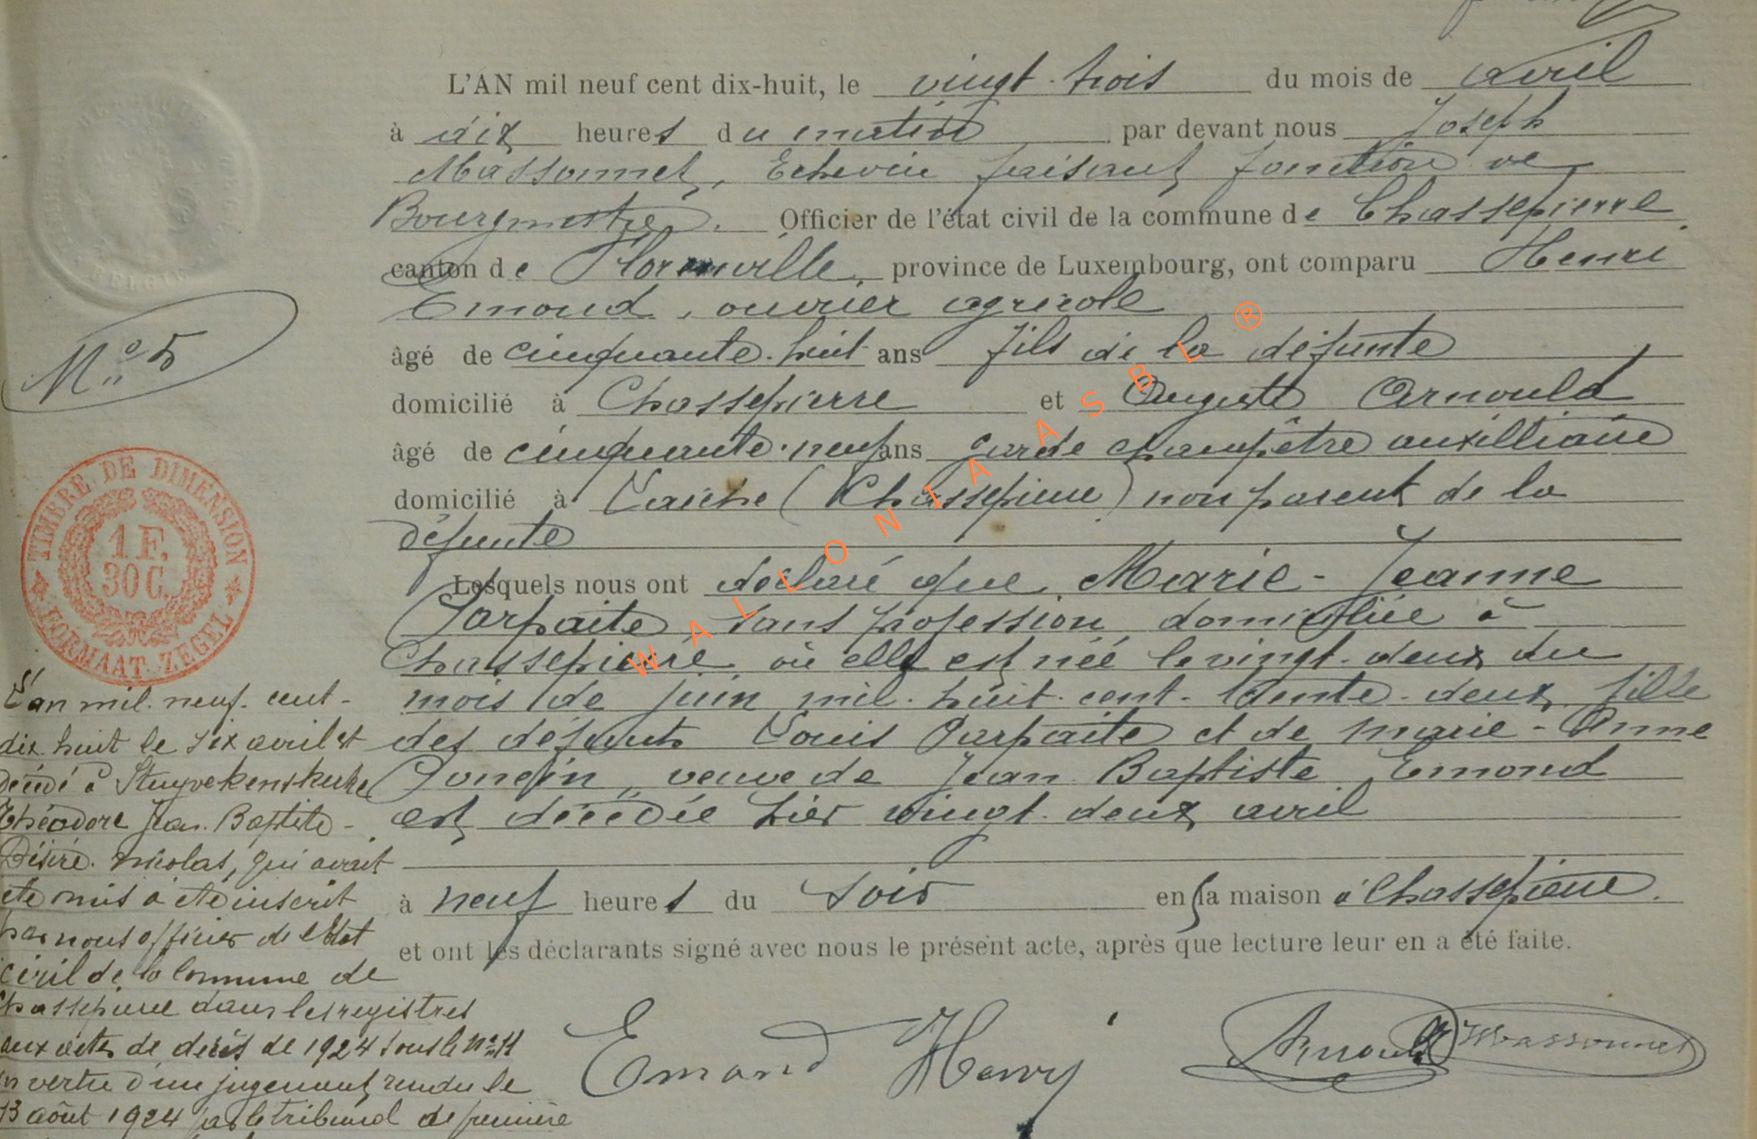 L'AN mil neuf cent dix-huit, le vingt-trois du mois de avril
à dix heures du matin par devant nous Joseph
Massonnet, Echevin faisant fonction de
Bourgmestre. Officier de l'état civil de la commune de Chassepierre
canton de Florenville, province de Luxembourg, ont comparu Henri
Emond, ouvrier agricole
âgé de cinquante-huit ans fils de la défunte
domicilié à Chassepierre et Auguste Arnould
âgé de cinquante-neuf ans garde champêtre auxilliaire
domicilié à Laiche (Chassepierre) non parent de la
défunte
Lesquels nous ont déclaré que Marie-Jeanne
Parfaite, sans profession, domiciliée à
Chassepierre, où elle est née le vingt-deux du
mois de juin mil-huit-cent-trente-deux, fille
des défunts Louis Parfaite et de Marie-Anne
veuve de Jean Baptiste Emond
est décédée hier vingt-deux avril
à neuf heures du soir en sa maison à Chassepierre.
et ont les déclarants signé avec nous le présent acte, après que lecture leur en a été faite.
Emond Henry Arnould Massonnet
N° 5
TIMBRE DE DIMENSION
1 F.
30 C.
FORMAAT-ZEGEL
L'an mil-neuf-cent-
dix huit le six avril est
décédé à Stuyvekenskerke
Théodore Jean-Baptiste-
Désiré Nicolas, qui avait
été mis à été inscrit
par nous officier de l'Etat
civil de la Commune de
Chassepierre dans les registres
aux actes de décès de 1924 sous le
en vertu d'un jugement rendu le
13 août 1924 par le tribunal de première
WALLONIA ASBL ®